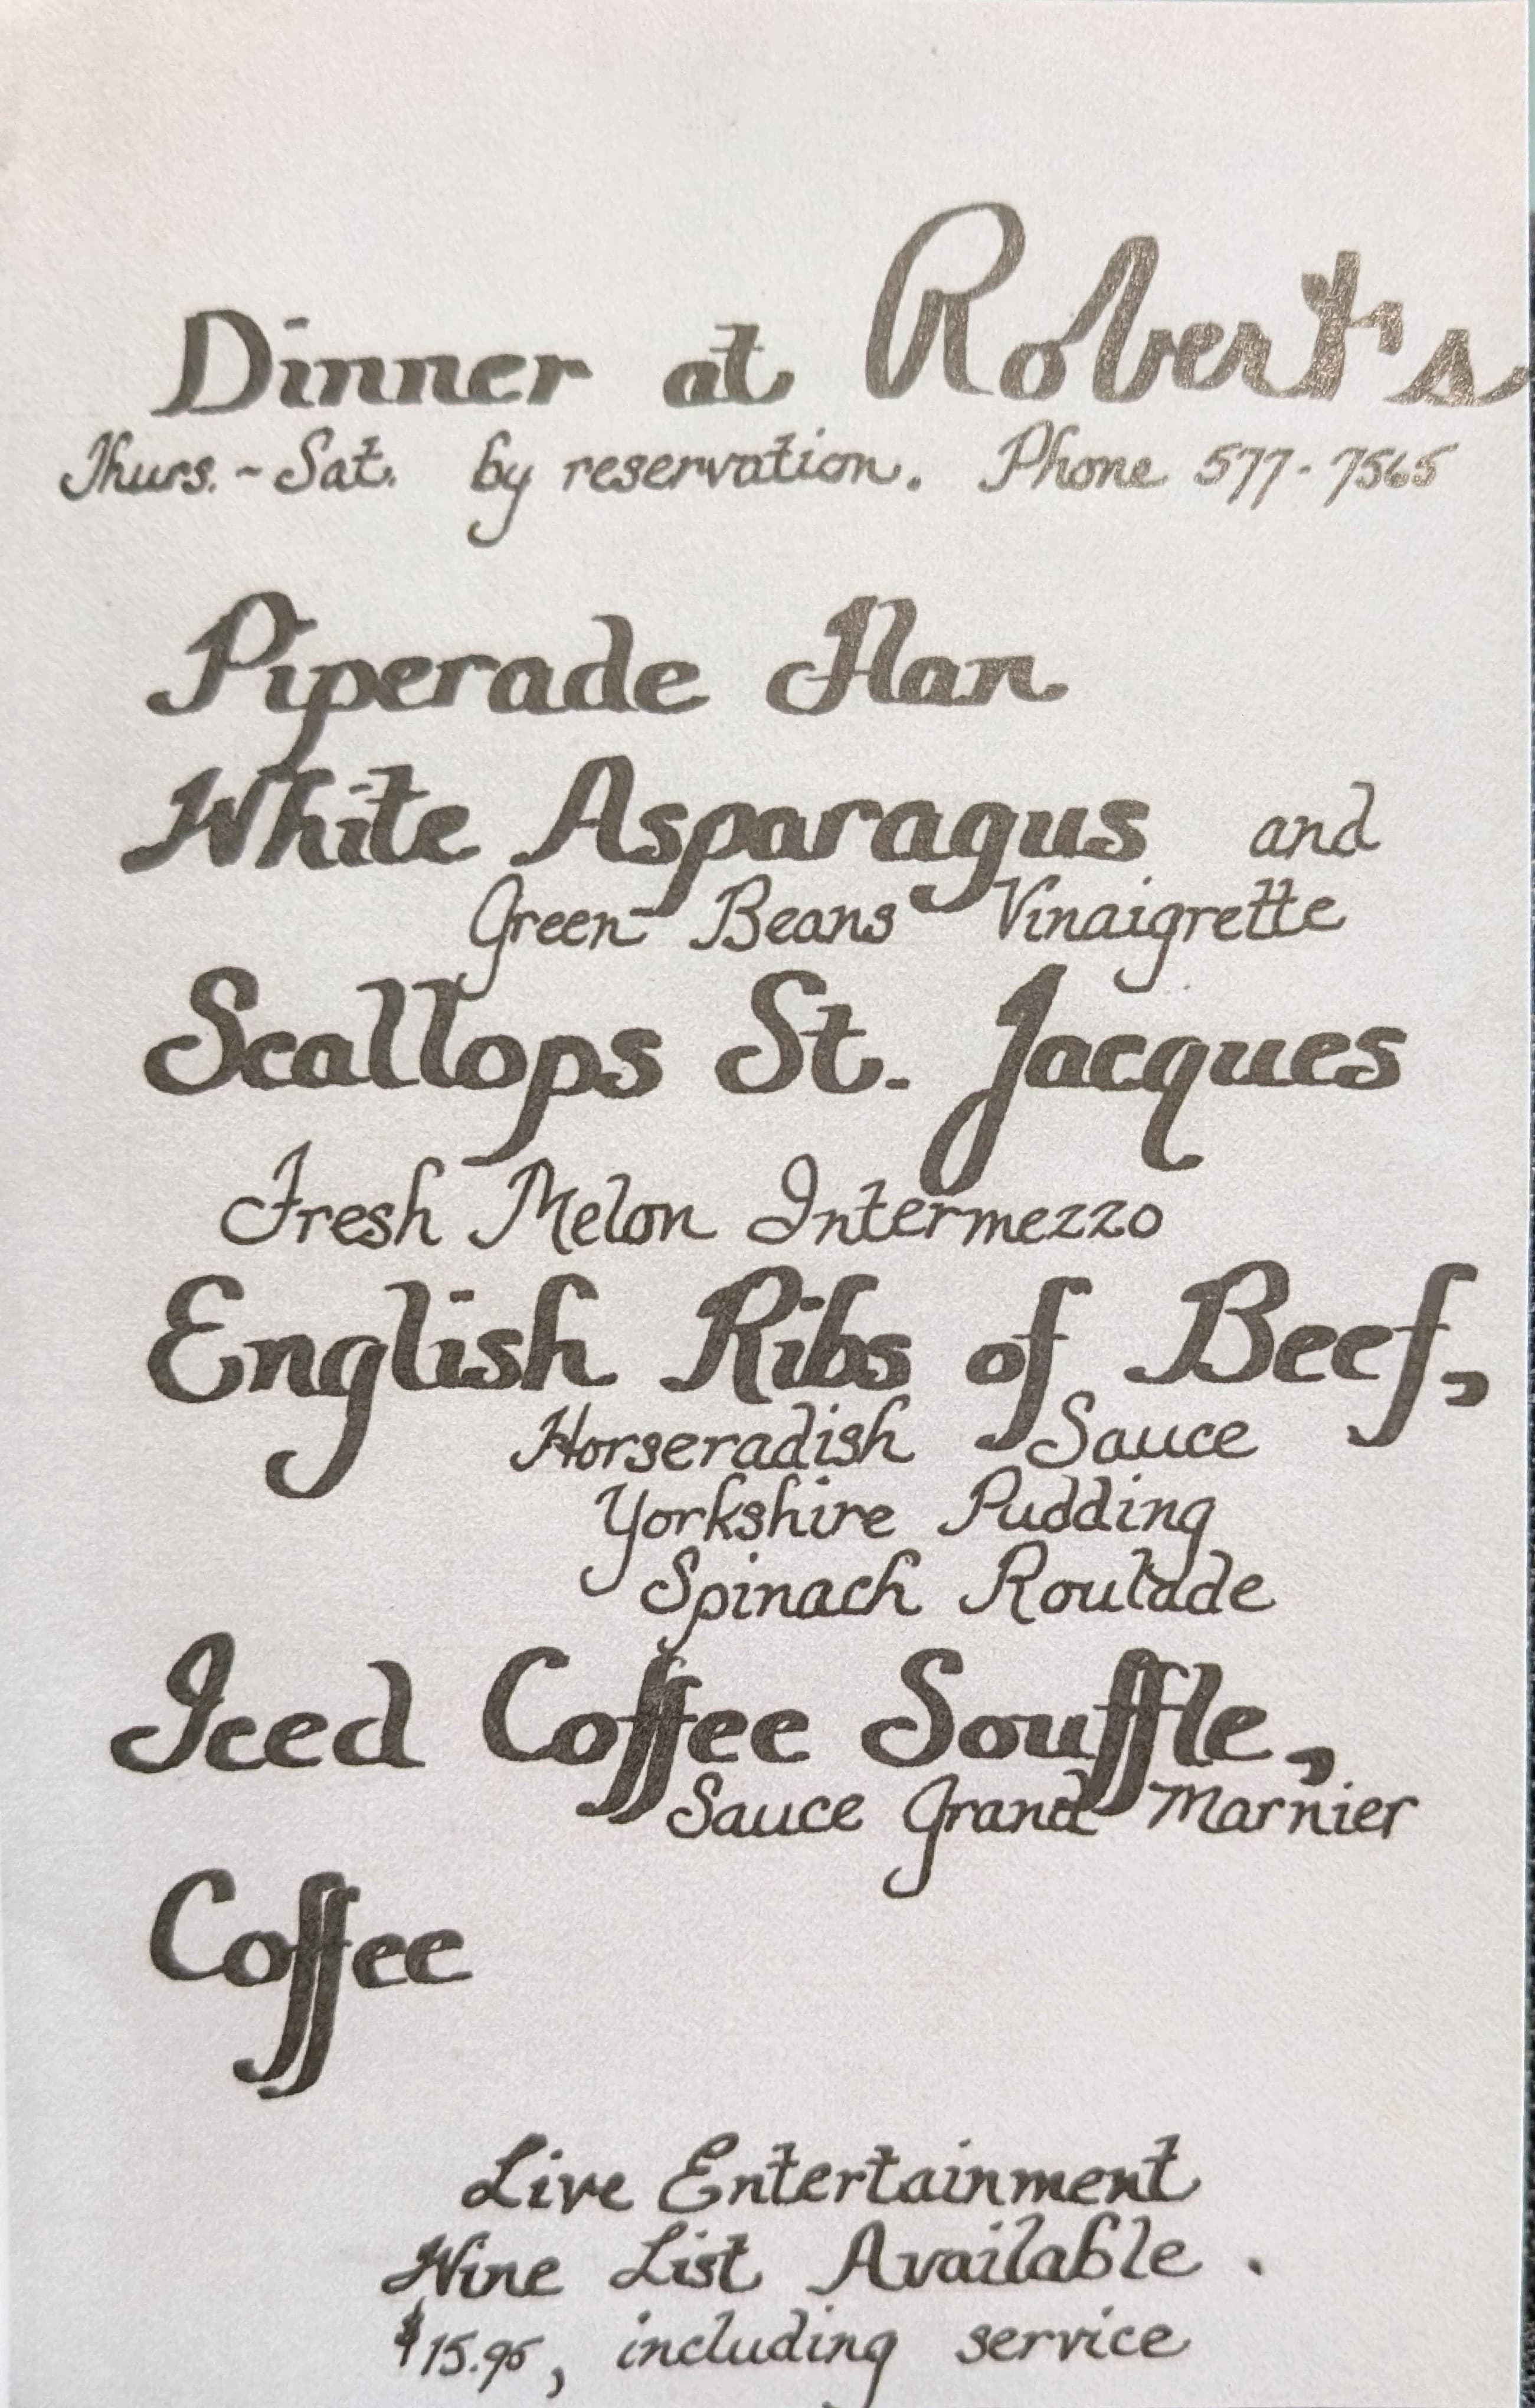 Dinner at Robert's
Thurs. ~ Sat. by reservation. Phone 577-7565
Piperade Flan
White Asparagus and
Green Beans Vinaigrette
Scallops St. Jacques
Fresh Melon Intermezzo
English Ribs of Beef,
Horseradish Sauce
Yorkshire Pudding
Spinach Roulade
Iced Coffee Souffle,
Sauce Grand Marnier
Coffee
Live Entertainment
Wine List Available.
$15.95, including service